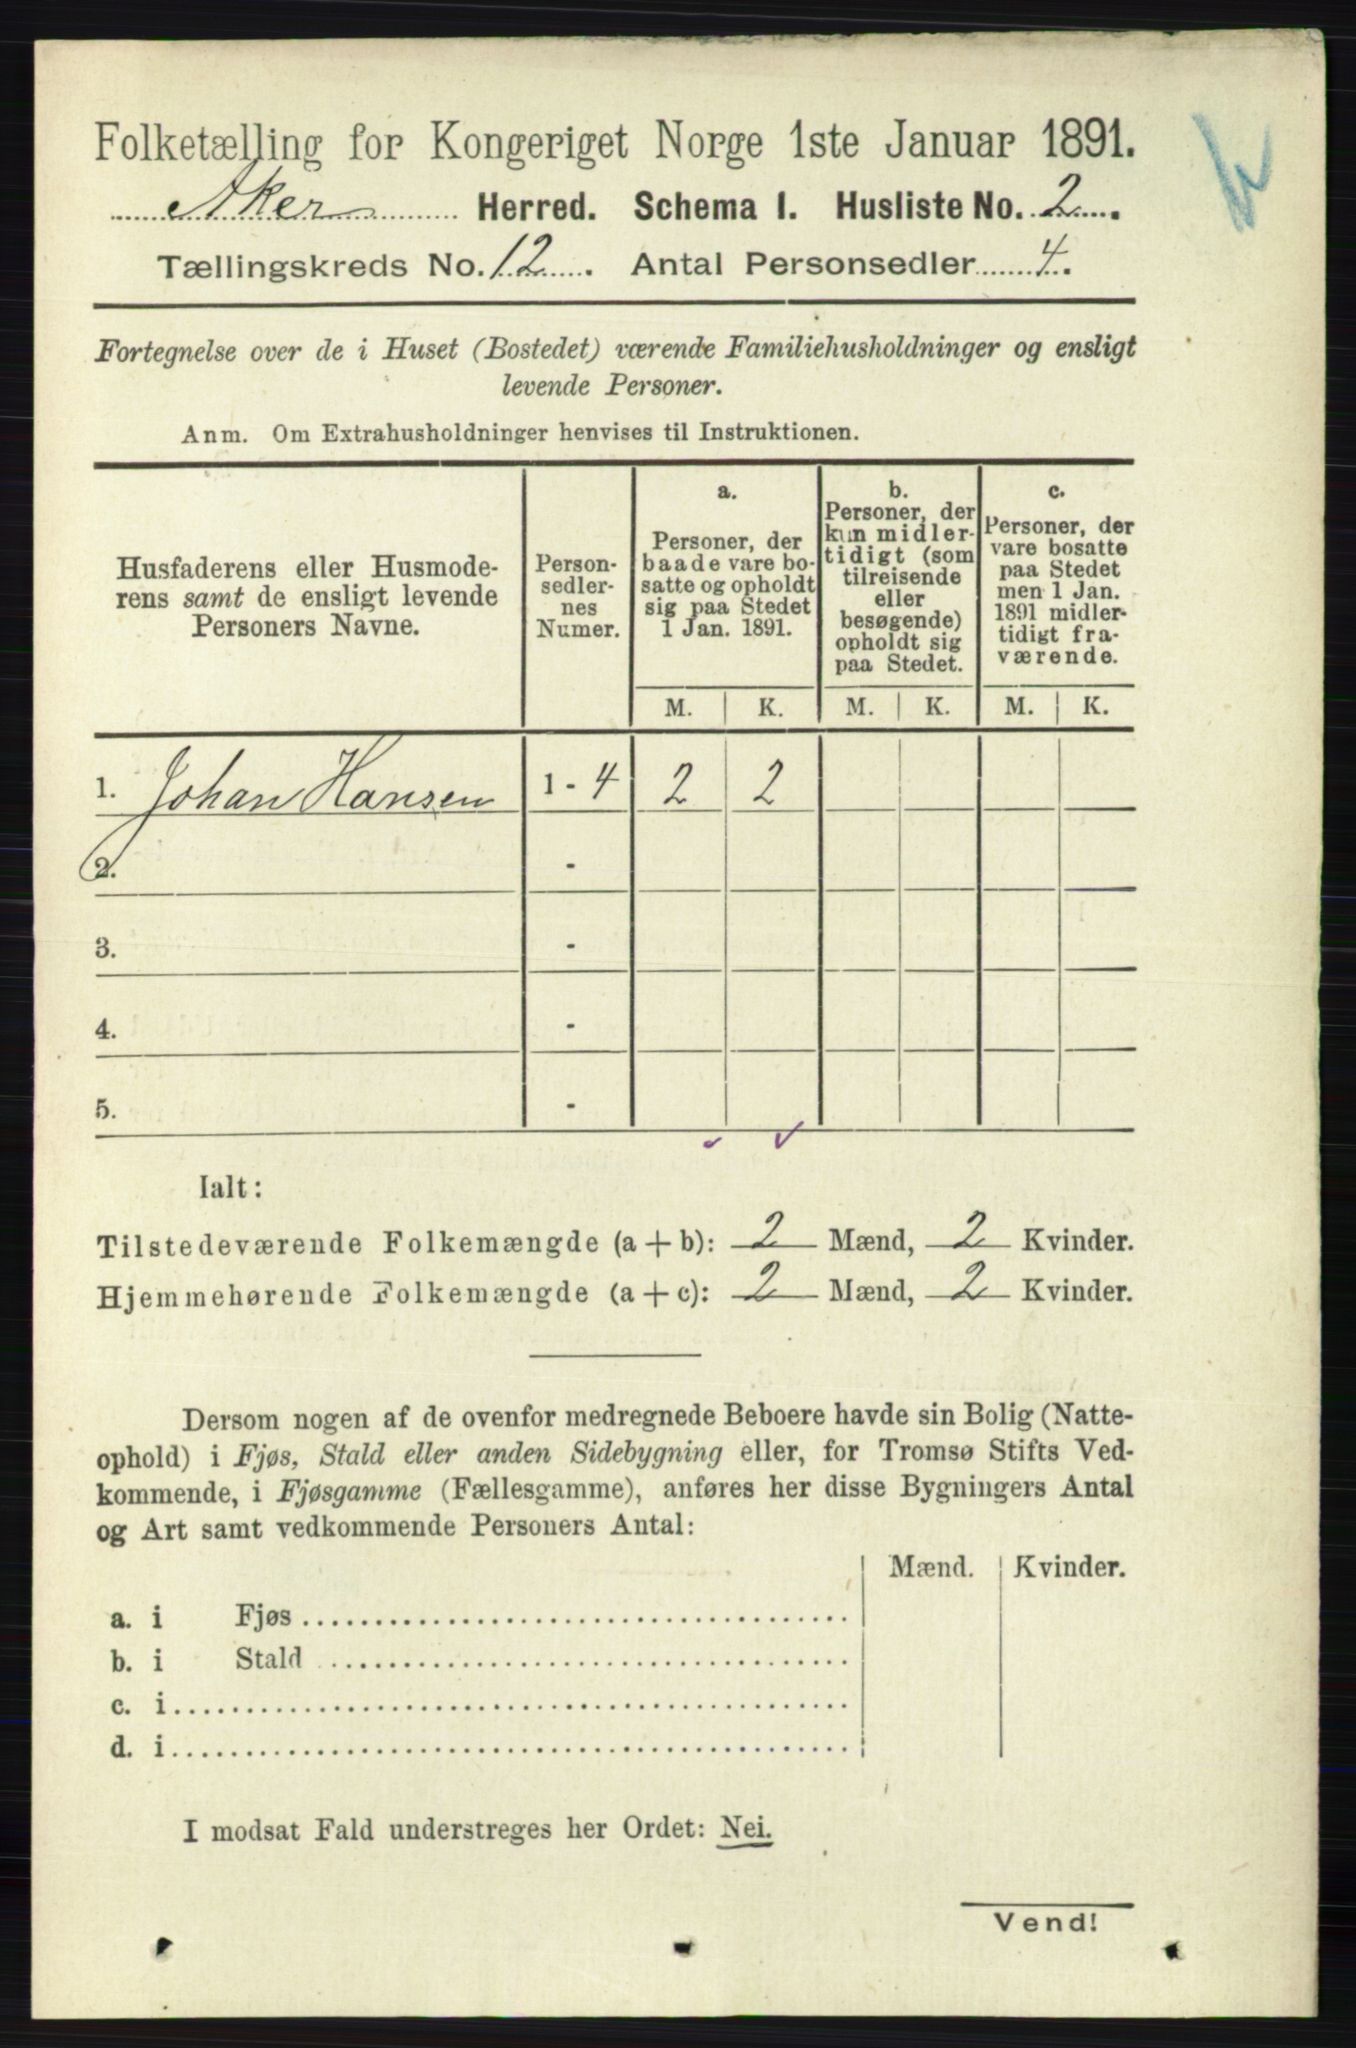 Folketælling for Kongeriget Norge 1ste Januar 1891.
Aker Herred. Schema 1. Husliste No. 2
Tællingskreds No. 12. Antal Personsedler 4.
Fortegnelse over de i Huset (Bostedet) værende Familiehusholdninger og ensligt
levende Personer.
Anm. Om Extrahusholdninger henvises til Instruktionen.
Husfaderens eller Husmode-
rens samt de ensligt levende
Personers Navne.
Person-
sedler-
nes
Numer.
a.
Personer, der
baade vare bo-
satte og opholdt
sig paa Stedet
1 Jan. 1891.
b.
Personer, der
kun midler-
tidigt (som
tilreisende
eller
besøgende)
opholdt sig
paa Stedet.
c.
Personer, der
vare bosatte
paa Stedet
men 1 Jan.
1891 midler-
tidigt fra-
værende.
M. K. M. K. M. K.
1. Johan Hansen 1 - 4 2 2
2. -
3. -
4. -
5. -
Ialt:
Tilstedeværende Folkemængde (a + b): 2 Mænd, 2 Kvinder.
Hjemmehørende Folkemængde (a + c): 2 Mænd, 2 Kvinder.
Dersom nogen af de ovenfor medregnede Beboere havde sin Bolig (Natte-
ophold) i Fjøs, Stald eller anden Sidebygning eller, for Tromsø Stifts Ved-
kommende, i Fjøsgamme (Fællesgamme), anføres her disse Bygningers Antal
og Art samt vedkommende Personers Antal:
Mænd. Kvinder.
a. i Fjøs
b. i Stald
c. i
d. i
I modsat Fald understreges her Ordet: Nei.
Vend!